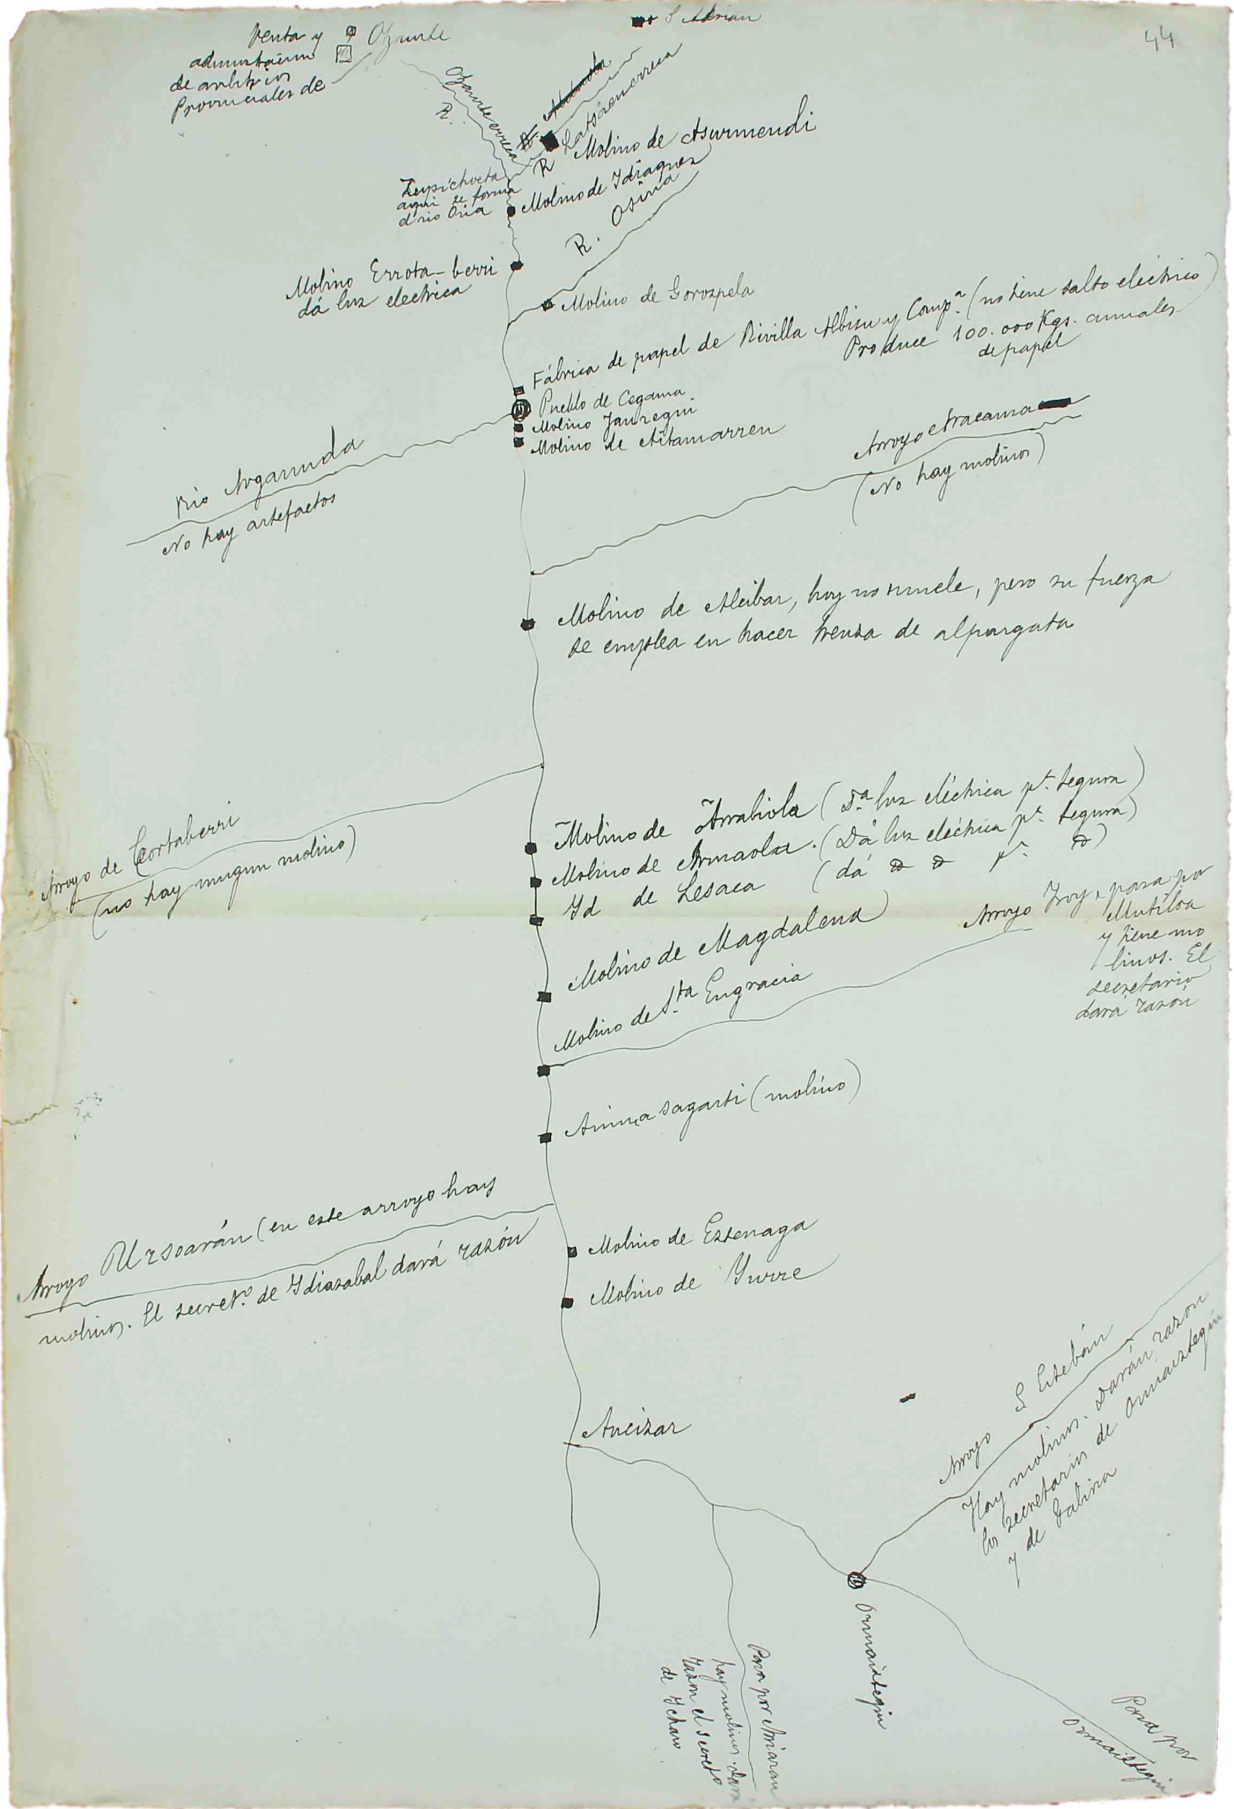 44
S Adrian
Venta y
administración
de arbitrios
Provinciales de
Ozaurte
R. Ozaurte erreca
R Latsaen erreca
Molino de Asurmendi
aqui se forma
el rio Oria
Molino de Idiaquez
R. Osiria
Molino Errota-berri
dá luz electrica
Molino de Gorospela
Fábrica de papel de Rivilla Albisu y Comp.ª (no tiene salto eléctrico)
Produce 100.000 Kgs. anuales
de papel
Pueblo de Cegama
Molino Jauregui
Molino de Aitamarren
Rio Argarunda
No hay artefactos
Arroyo Aracama
(No hay molinos)
Molino de Alcibar, hoy no muele, pero su fuerza
se emplea en hacer trenza de alpargata
Arroyo de Cortaberri
(no hay ningun molino)
Molino de Arrabiola (Dá luz eléctrica pª. Segura)
Molino de Armaola. (Dá luz eléctrica pª. Segura)
Id de Lesaca (dá
Molino de Magdalena
Arroyo Troya, pasa por
Mutiloa
y tiene mo
linos. El
secretario
dará razón
Molino de Sta Engracia
Ainusagasti (molino)
Arroyo Ursoarán (en este arroyo hay
molinos. El secret.º de Idiazabal dará razón
Molino de Estenaga
Molino de Yurre
Arroyo S Esteban
Hay molinos. Darán razon
los secretarios de Ormaiztegui
y de Gabiria
Anéizar
Ormaiztegui
Pasa por Arriaran
hay molinos. dará
razon el secreto
de Ichaso
Pasa por
Ormaiztegui